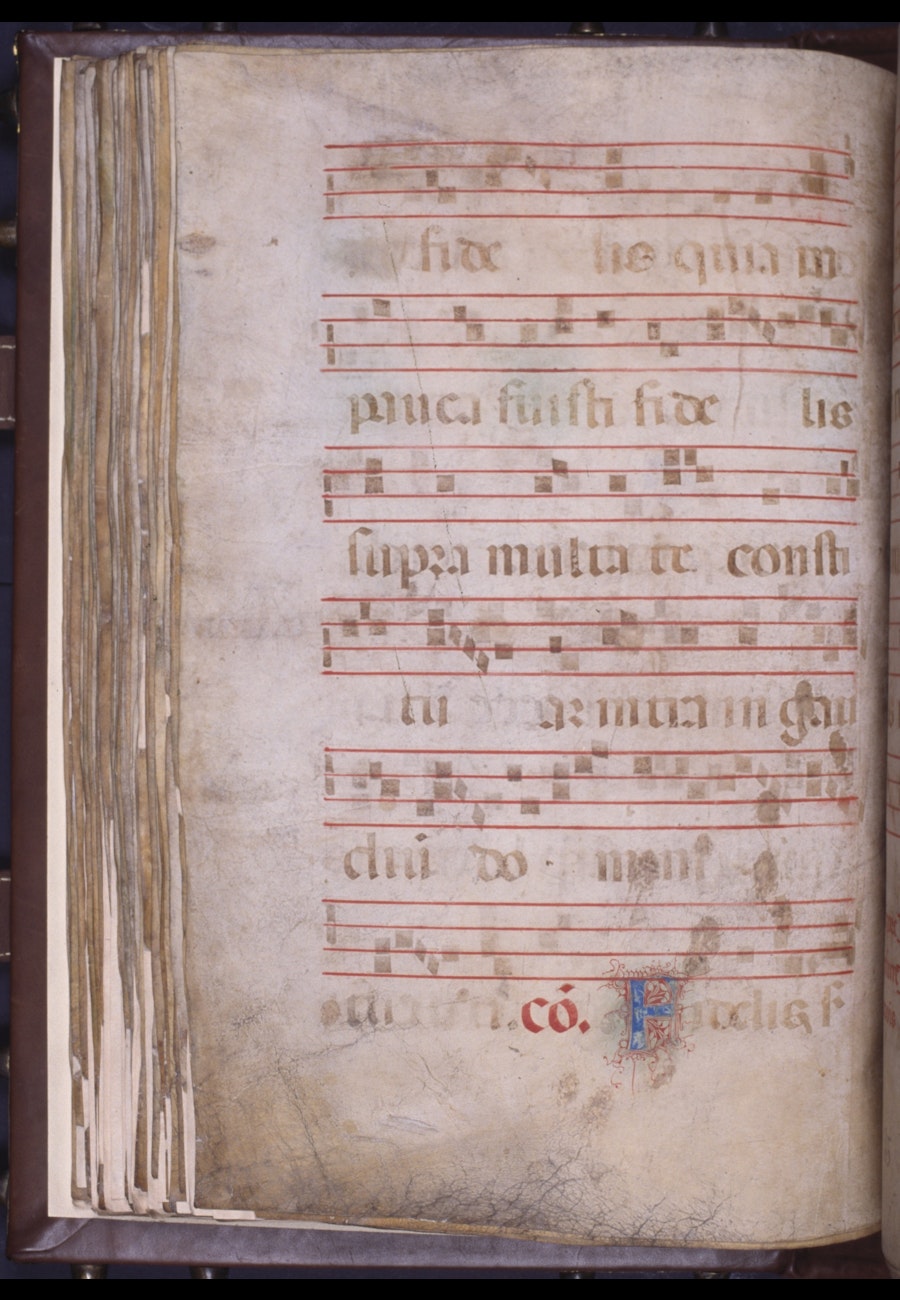 fide lis quia in
pauca fuisti fide lis
supra multa te consti
tu am intra in gau
diu do mini
cō. Fidelis s